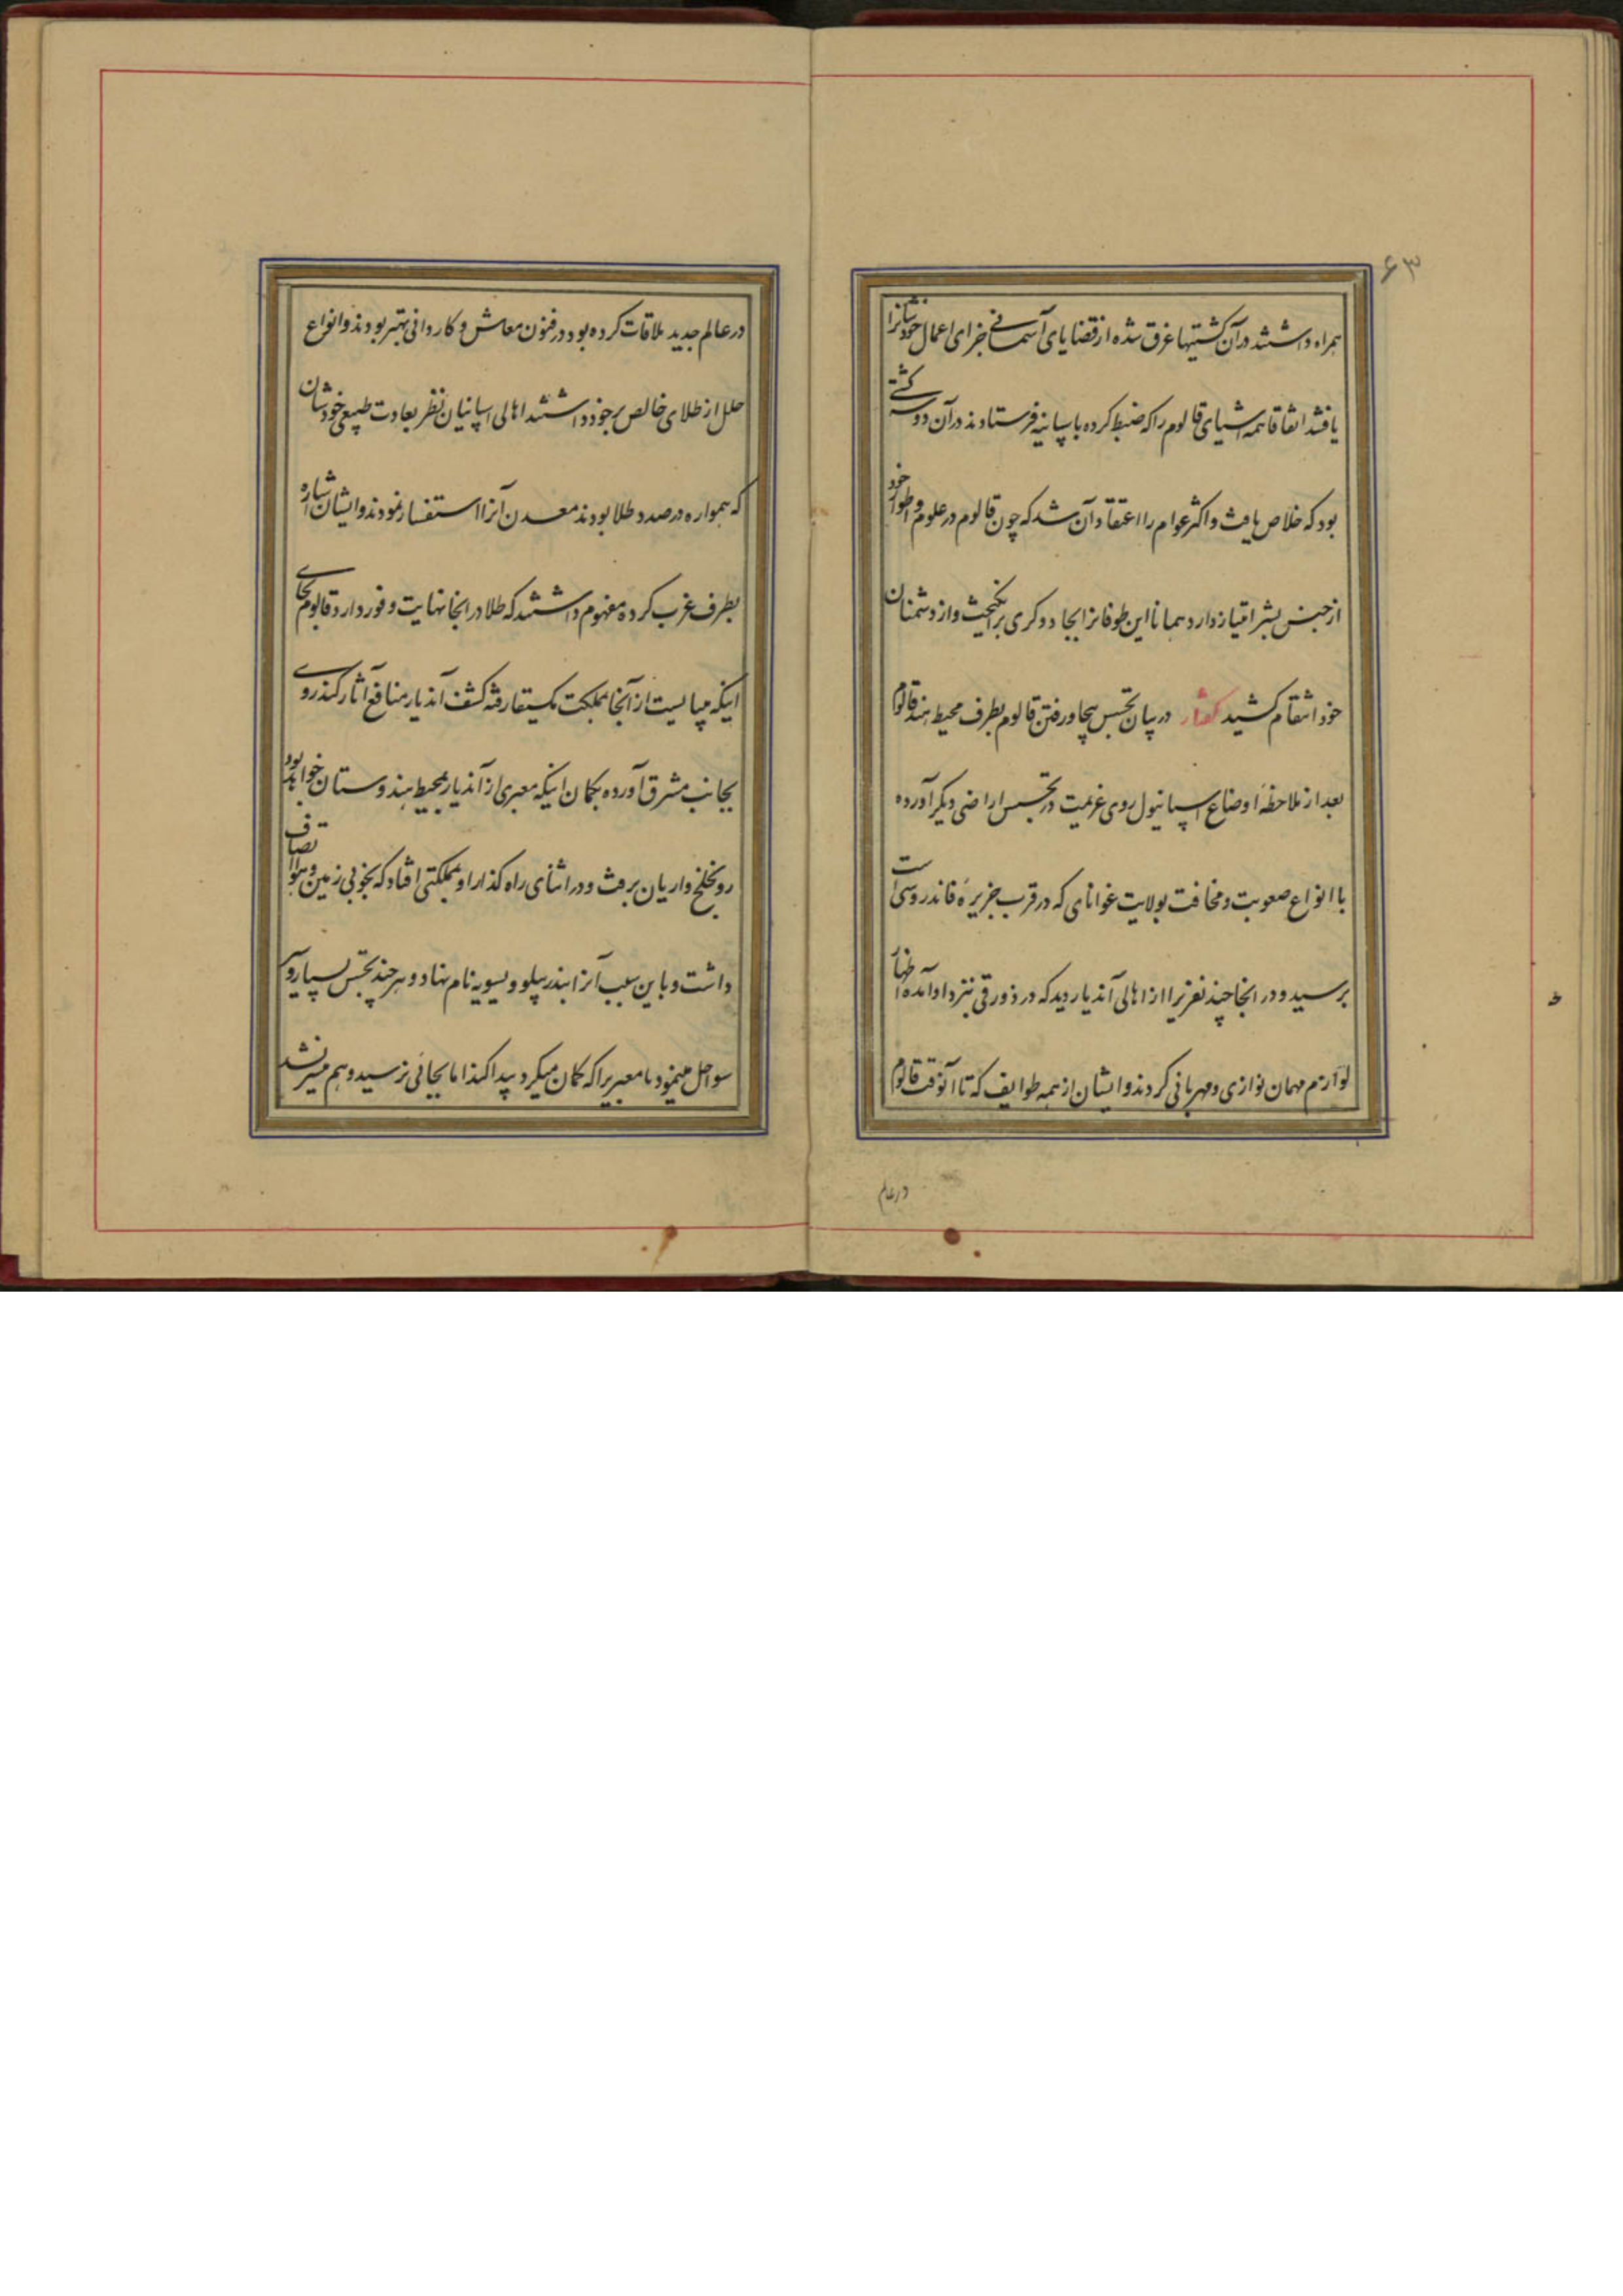 ۶۳
همراه داشتند در آن کشتیها غرق شده از قضایای آسمانی جزای اعمال خودشانرا
یافتند اتفاقا همه اشیای قالوم را که ضبط کرده باسپانیه فرستادند در آن دو کشتی
بود که خلاص یافت و اکثر عوام را اعتقاد آن شد که چون قالوم در علوم و اطوار خود
از جنس بشر امتیاز دارد همانا این طوفانرا بجادوکری برانکیخت و از دشمنان
خود انتقام کشید کفتار در بیان تجسس بیجا و رفتن قالوم بطرف محیط هند قالوم
بعد از ملاحظهٔ اوضاع اسپانیول روی عزیمت در تجسس اراضی دیکر آورده
با انواع صعوبت و مخافت بولایت غوانای که در قرب جزیرهٔ قاندروسی است
برسید و در انجا چند نفریرا از اهالی آندیار دید که در زورقی بنزد او آمده اظهار
لوازم مهمان نوازی و مهربانی کردند و ایشان از همه طوایف که تا آنوقت قالوم
در عالم
در عالم جدید ملاقات کرده بود در فنون معاش و کاردانی بهتر بودند و انواع
حلل از طلای خالص برخود داشتند اهالی اسپانیان نظر بعادت طبیعی خودشان
که همواره در صدد طلا بودند معدن آنرا استفسار نمودند و ایشان اشاره
بطرف غرب کرده مفهوم داشتند که طلا در انجا نهایت وفور دارد قالوم بجای
اینکه میبایست از آنجا بمملکت مکسیقا رفته کشف آندیار منافع آثار کند روی
بجانب مشرق آورده بکمان اینکه معبری از آندیار بمحیط هندوستان خواهد بود
رو بخلیج داریان برفت و در اثنای راه کذار او بمملکتی افتاد که بخوبی زمین و هوا اتصاف
داشت و باین سبب آنرا بندر پیلو ویسویه نام نهاد و هر چند تجسس بسیار در
سواحل مینمود تا معبریرا که کمان میکرد پیدا کند اما بجائی نرسید و هم میسر نشد